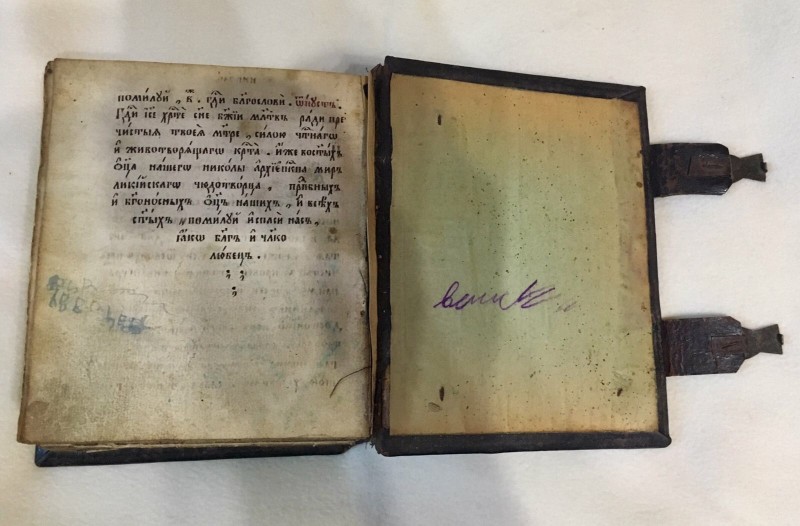 помилꙋй, к҃. гдⷭ҇и бл҃гослови. ѿпꙋстъ.
Гдⷭ҇и і҆с҃е хрⷭ҇те сн҃е бж҃їй мл҃твъ ради пре
чистыѧ твоеѧ̀ мт҃ре, силою чⷭ҇тнагѡ
и҆ животворѧщагѡ крⷭ҇та. и҆же во ст҃ы́хъ
ѻ҆ц҃а нашегѡ николы а҆рхїепⷭ҇кпа мир
ликїйскагѡ чюдотворца. прпⷣбныхъ
и҆ бг҃оносныхъ ѻ҆ц҃ъ нашихъ, и҆ всѣ́хъ
ст҃ыхъ, помилꙋй и҆ спаси насъ,
ꙗ҆кѡ бл҃гъ и҆ чл҃ко
любецъ.